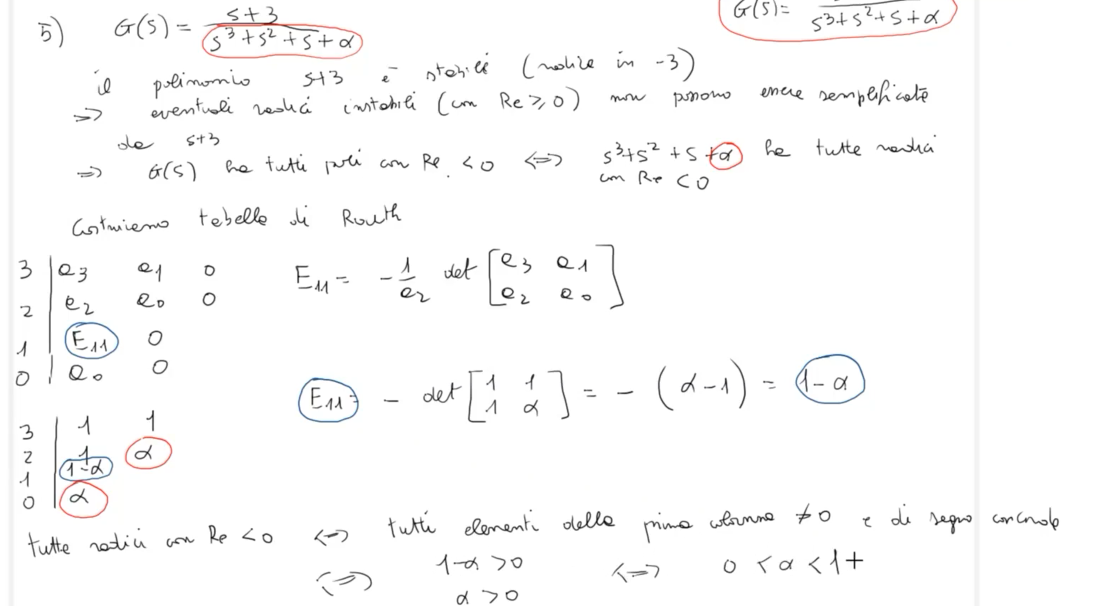 5) G(s) = s+3 / s³+s²+s+α
G(s) = s³+s²+s+α
il polinomio s+3 è stabile (radice in -3)
=> eventuali radici instabili (con Re ≥ 0) non possono essere semplificate
da s+3
=> G(s) ha tutti poli con Re < 0 <=> s³+s²+s+α ha tutte radici
con Re < 0
Costruiamo tabella di Routh
3 | a₃ a₁ 0
2 | a₂ a₀ 0
1 | E₁₁ 0
0 | a₀ 0
E₁₁ = - 1/a₂ det [a₃ a₁
a₂ a₀]
E₁₁ = - det [1 1
1 α] = - (α-1) = 1-α
3 | 1 1
2 | 1 α
1 | 1-α
0 | α
tutte radici con Re < 0 <=> tutti elementi della prima colonna ≠0 e di segno concorde
<=> 1-α > 0
α > 0
<=> 0 < α < 1+